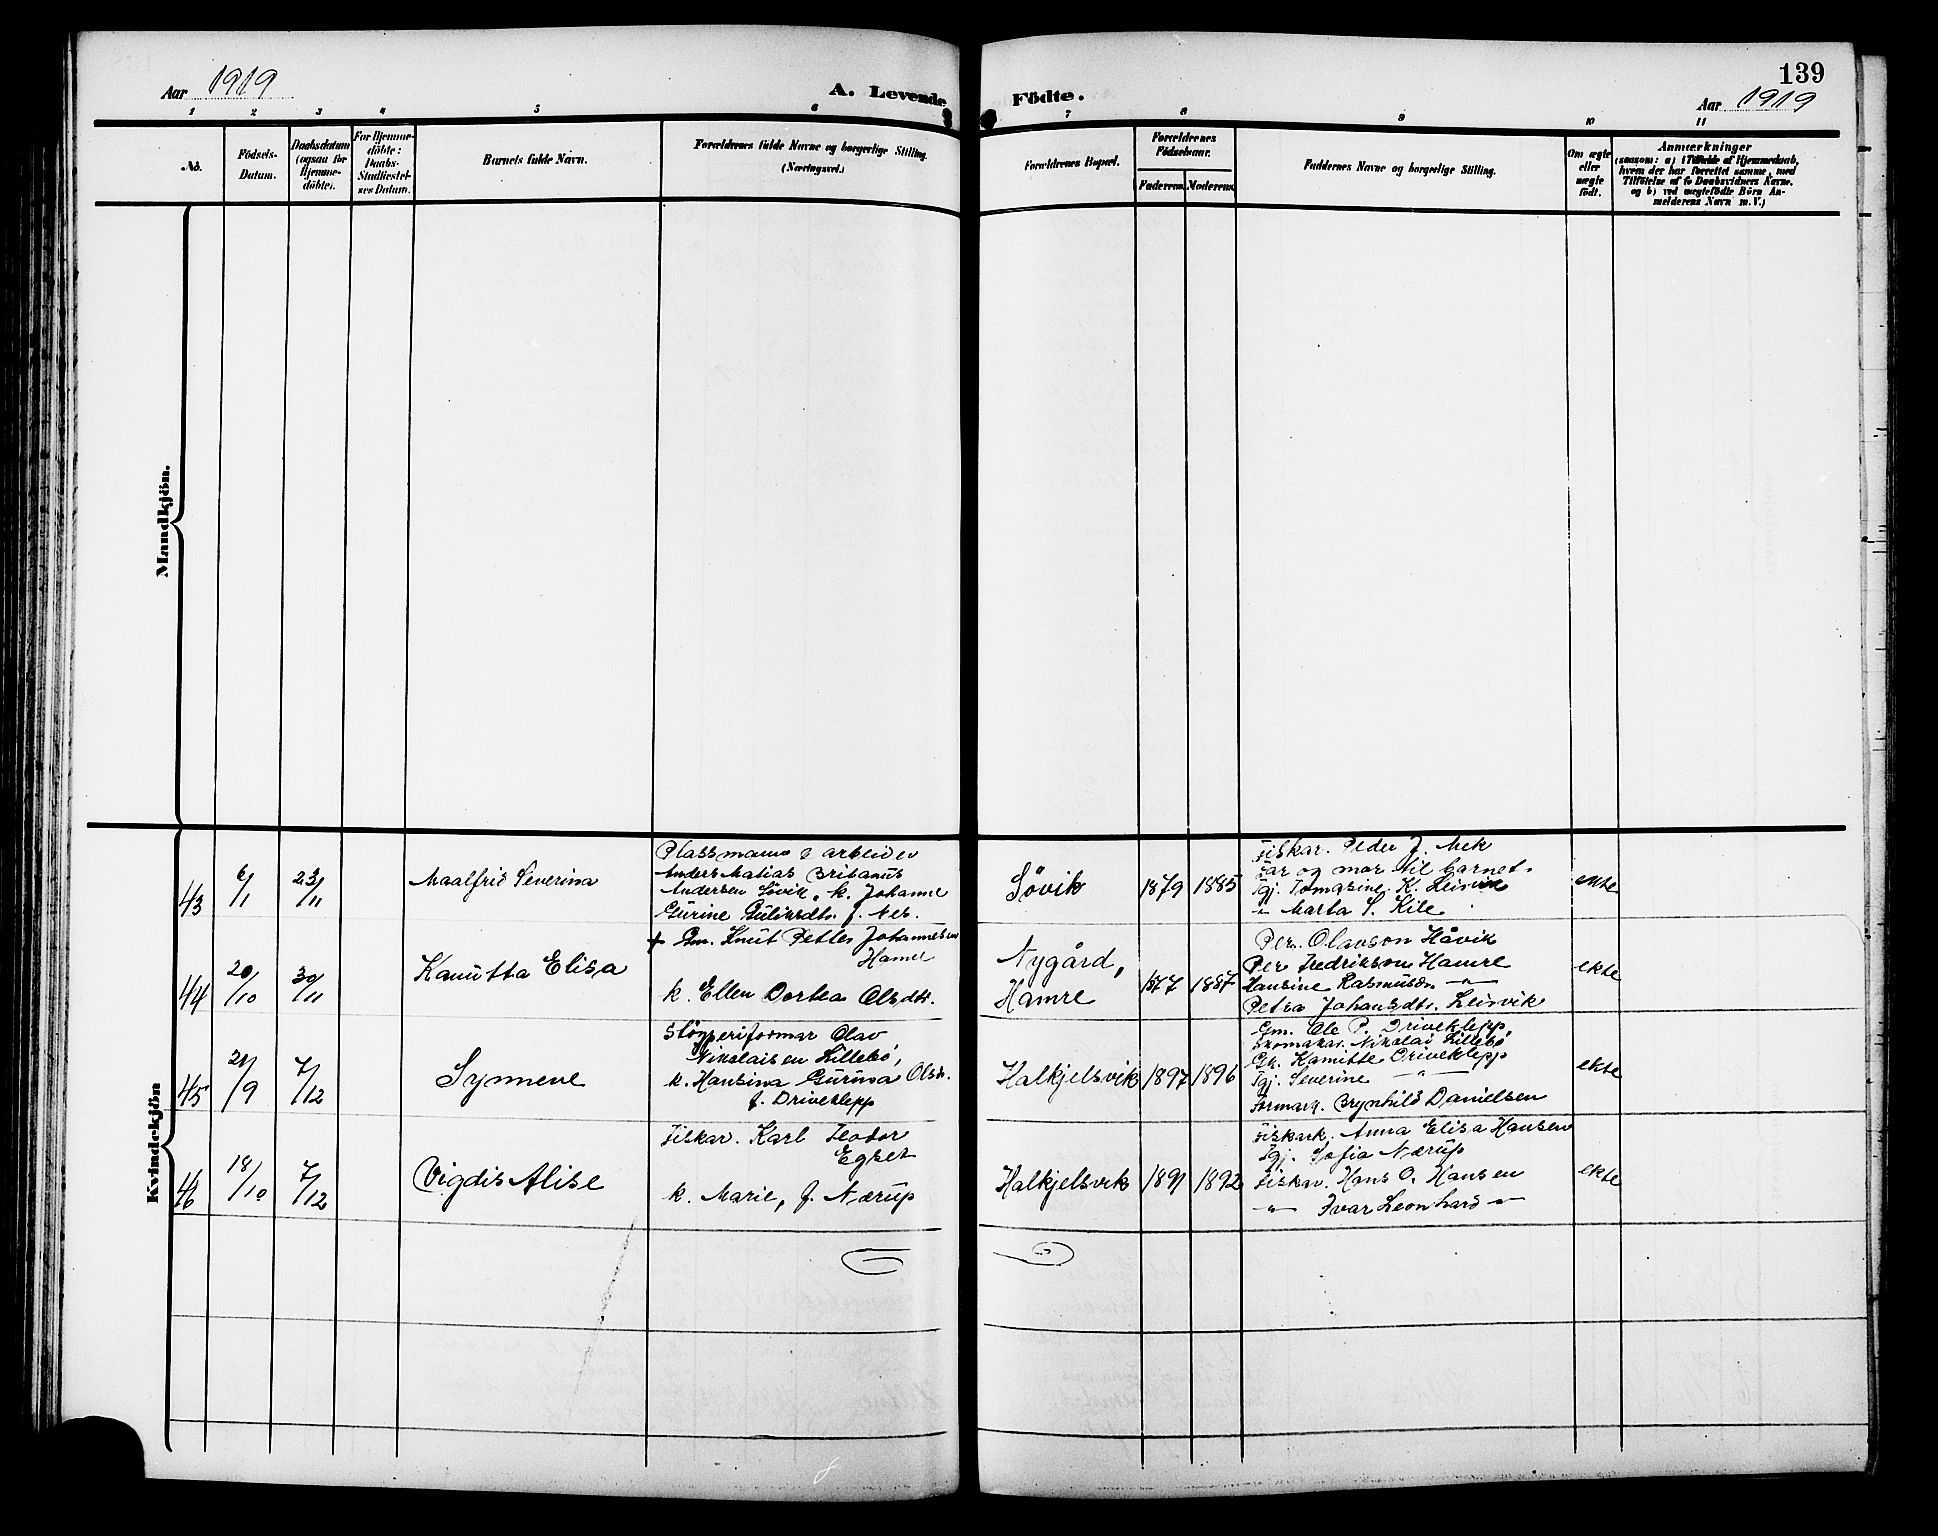 139
Aar 1919
A. Levende Födte.
Aar 1919
1 2 3 4 5 6 7 8 9 10 11
No.
Födsels-
Datum.
Daabsdatum
(ogsaa for
Hjemme-
döbte).
For Hjemme-
döbte:
Daabs-
Stadfæstel-
ses Datum.
Barnets fulde Navn.
Forældrenes fulde Navne og borgerlige Stilling.
(Næringsvei.)
Forældrenes Bopæl.
Forældrenes
Födselsaar.
Faderens. Moderens.
Faddernes Navne og borgerlige Stilling.
Om ægte
eller
uægte
födt.
Anmærkninger
(saasom: a) i Tilfælde af Hjemmedaab,
hvem der har forrettet samme, med
Tilföielse af to Daabsvidners Navne,
og b) ved uægtefödte Börn An-
melderens Navn m. V.)
Mandkjön.
Kvindekjön
43
6/1
23/11
Maalfrid Severina
Plassmann & arbeider
Anders Matias Britanus
Andersen Søvik, k. Johanne
Gurine Gulisdtr. f. Nes.
Søvik
1879 1885
Fiskar. Peder J. Mek
Far og mor til barnet.
Tgj. Tomasine K. Leirvik
" Marta S. Kile
ekte
44
20/10
30/11
Kanutta Elisa
+ Gm. Knut Petter Johannesen
Hamre
k. Ellen Dortea Olsdtr.
Nygård,
Hamre
1877 1887
Per Olavson Håvik
Per Fredrikson Hamre
Hansine Rasmusdr. "
Petra Johansdtr. Leirvik
ekte
45
21/9
7/12
Synneve
Støyperiformar Olav
Nikolaisen Lillebø,
k. Hansina Gurina Olsdr.
f. Driveklepp
Halkjelsvik
1897 1896
Gm. Ole P. Driveklepp,
Skomakar. Nikolai Lillebø
Gk. Kamitte Driveklepp
Tgj. Severine "
Formark. Brynhild Danielsen
ekte
46
18/10
7/12
Vigdis Alise
Fiskar. Karl Teodor
Egset
k. Marie, f. Nærup
Halkjelsvik
1891 1892
Fiskark. Anna Elisa Hansen
Tgj. Sofia Nærup
Fiskar. Hans O. Hansen
" Ivar Leonhard "
ekte